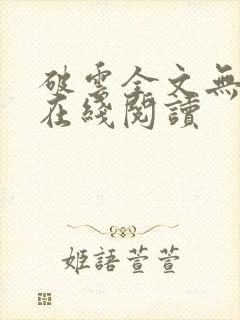 破雲全文無
在綫閱讀
姬語萱萱